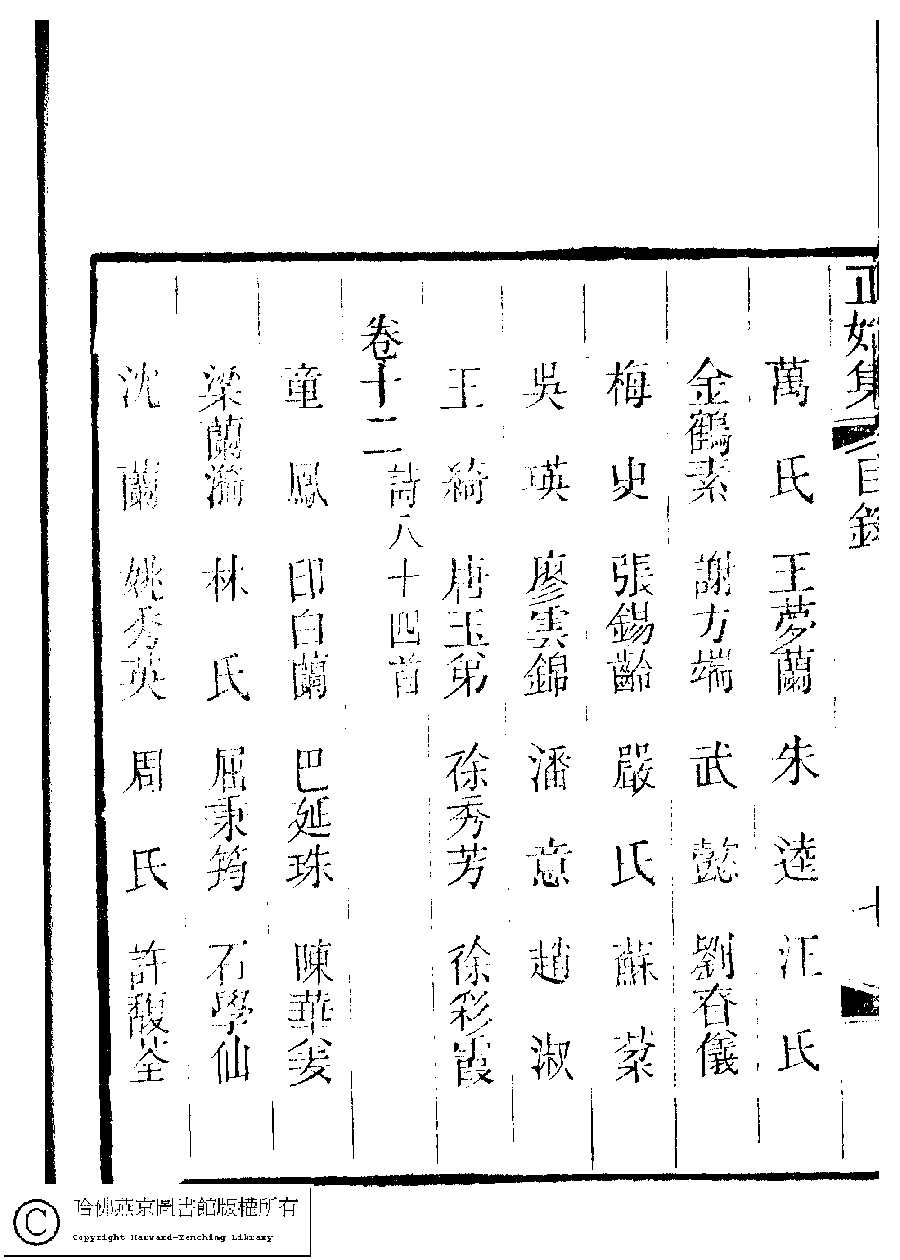 正始集 目錄 十
萬 氏 王夢蘭 朱 逵 汪 氏
金鶴素 謝方端 武 懿 劉春儀
梅 史 張錫齡 嚴 氏 蘇 棻
吳 瑛 廖雲錦 潘 意 趙 淑
王 綺 唐玉弟 徐秀芳 徐彩霞
卷十二
詩八十四首
童 鳳 印白蘭 巴延珠 陳華姜
梁蘭漪 林 氏 屈秉筠 石學仙
沈 蘭 姚秀英 周 氏 許馥荃
哈佛燕京圖書館版權所有
Copyright Harvard-Yenching Library